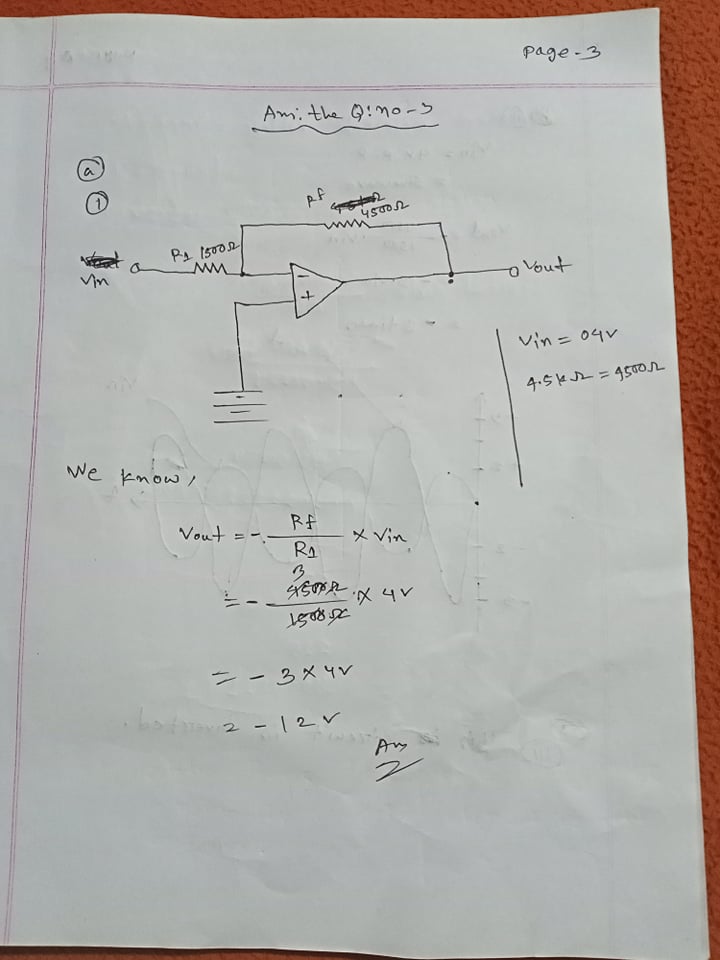 Page-3
Ans: the Q: no-3
(a)
(1)
Rf
4500Ω
R1 1500Ω
Vin
Vout
-
+
Vin = 04V
4.5kΩ = 4500Ω
We know,
Vout = - Rf / R1 × Vin
3
= - 4500Ω / 1500Ω × 4V
= - 3 × 4V
= - 12V
Ans